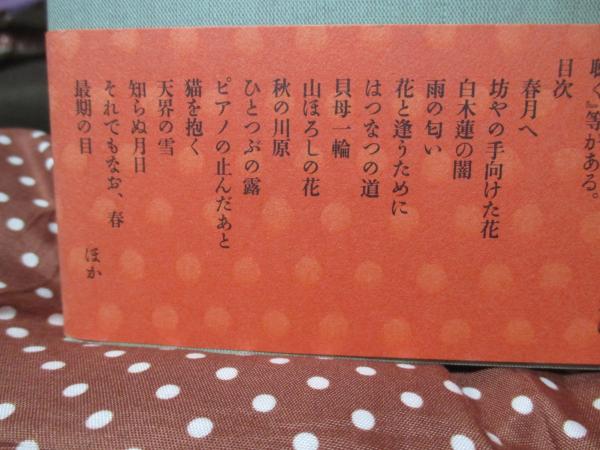 聴く』等がある。
目次
春月へ
坊やの手向けた花
白木蓮の闇
雨の匂い
花と逢うために
はつなつの道
貝母一輪
山ほろしの花
秋の川原
ひとつぶの露
ピアノの止んだあと
猫を抱く
天界の雪
知らぬ月日
それでもなお、春
最期の日
ほか